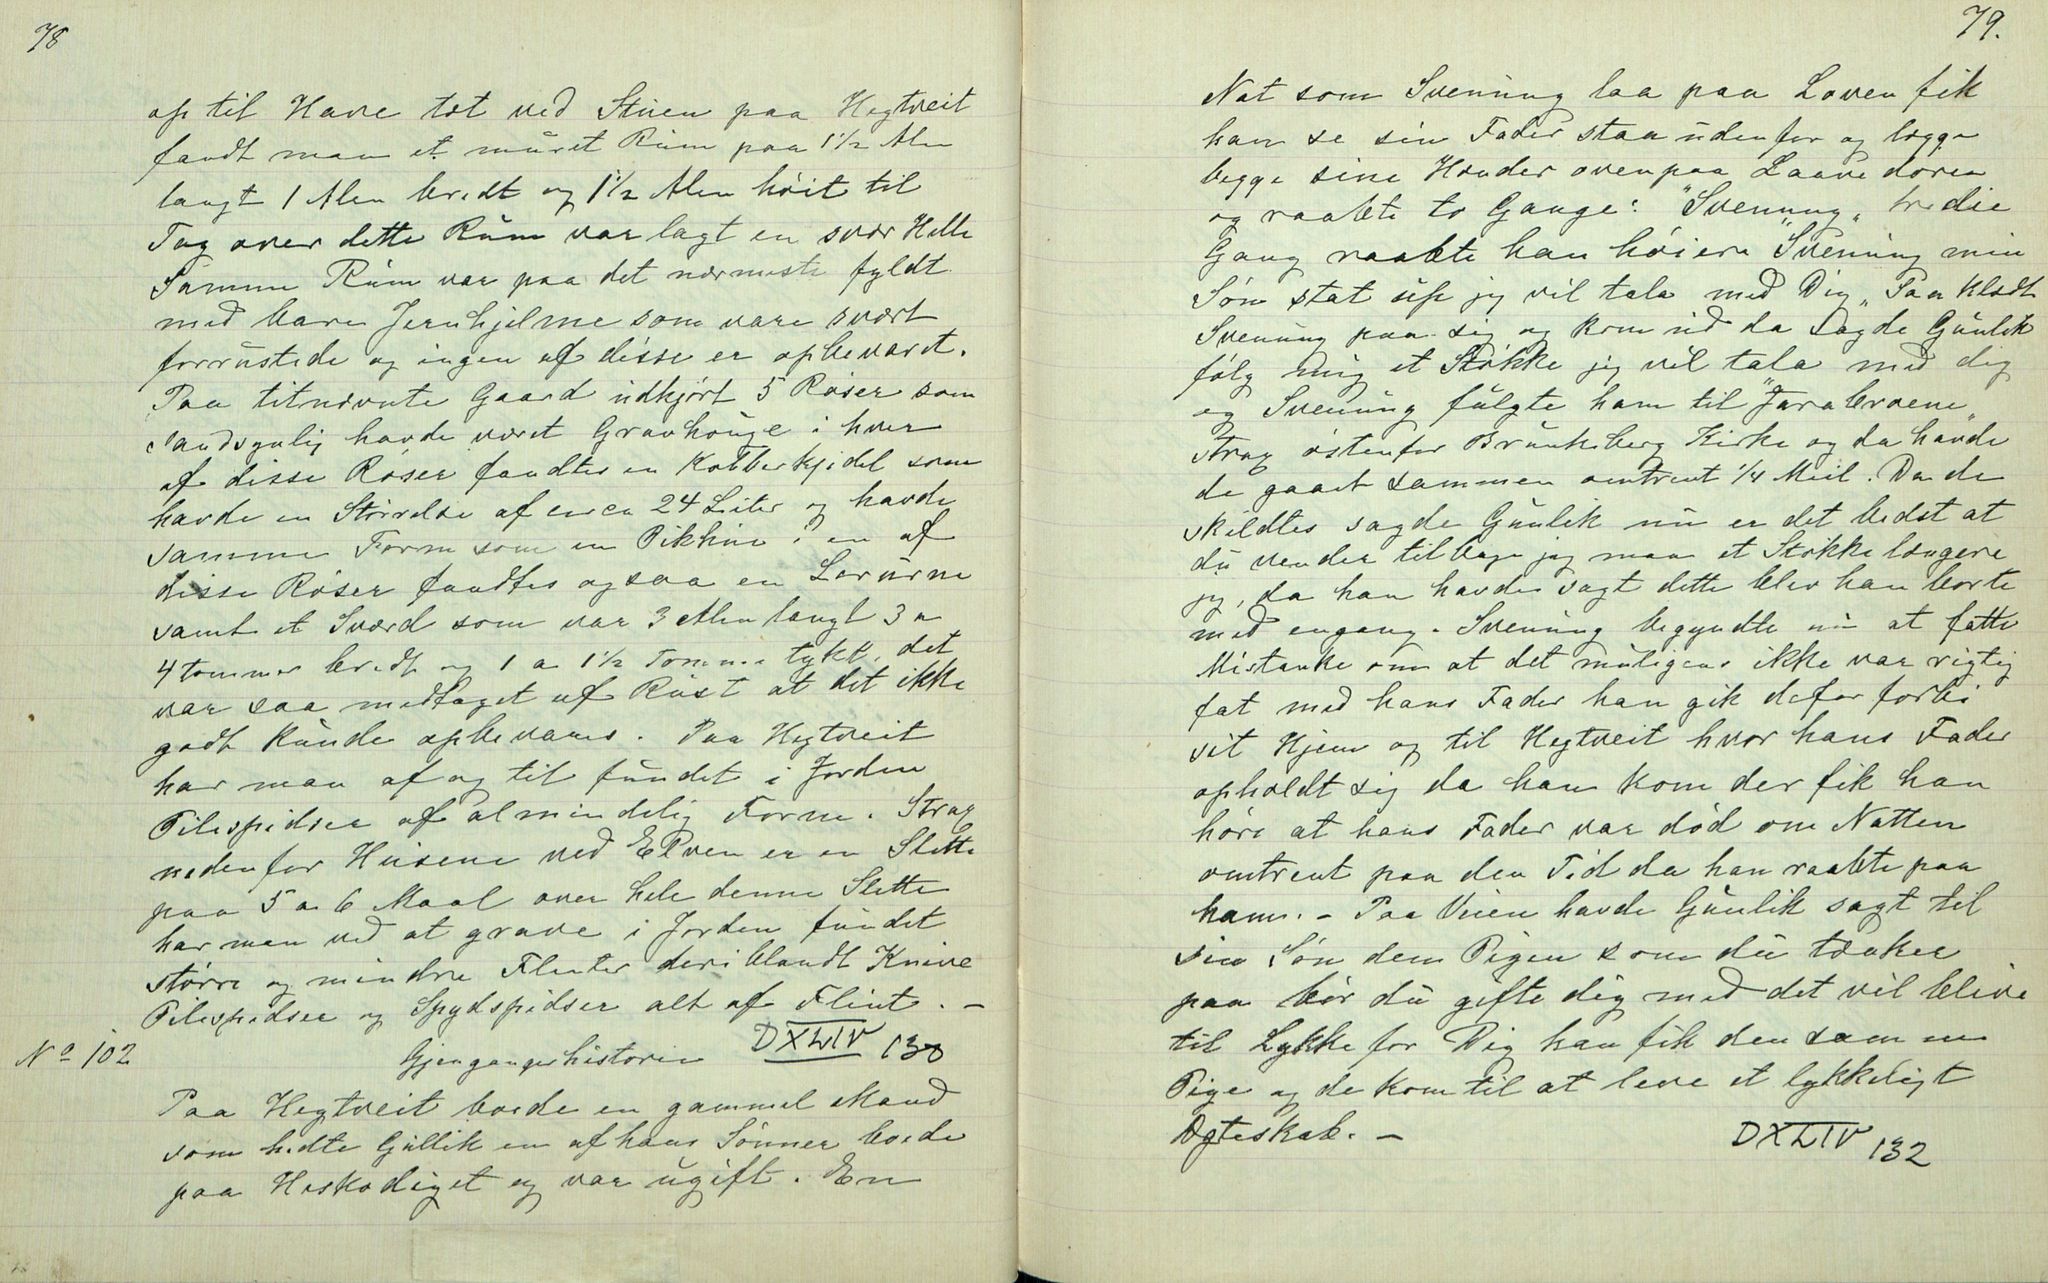 78
op til Have tæt ved Stuen paa Hegtveit
fandt man et muret Rum paa 1 1/2 Alen
langt 1 Alen bredt og 1 1/2 Alen höit til
Tag over dette Rum var lagt en svær Helle
Samme Rum var paa det nærmeste fyldt
med bare Jernhjelme som vare svært
forrustede og ingen af disse er opbevaret.
Paa titnævnte Gaard udkjört 5 Röser som
sandsynlig havde været Gravhouge i hver
af disse Röser fandtes en Kobberkjedel som
havde en Störrelse af circa 24 Liter og havde
samme Form som en Pikhue i en af
disse Röser fandtes ogsaa en Lerurne
samt et Sværd som var 3 Alen langt 3 a
4 tommer bredt og 1 a 1 1/2 Tomme tykk, det
var saa medtaget af Rust at det ikke
godt kunde opbevares. Paa Hegtveit
har man af og til fundet i Jorden
Pilespidser af almindelig Form. Strax
nedenfor Husene ved Elven er en Slette
paa 5 a 6 Maal over hele denne Slette
har man ved at grave i Jorden fundet
större og mindre Flinter deriblandt Knive
Pilespidser og Spydspidser alt af Flint. -
DXLIV 130
No 102 Gjengangerhistorie
Paa Hegtveit boede en gammel Mand
som hedte Gullik en af hans Sönner boede
paa Heskodiget og var ugift. En
79.
Nat som Svenung laa paa Loven fik
han se sin Fader staa udenfor og lægge
begge sine Hænder ovenpaa Laavedoren
og raabte to Gange: "Svenung" tredie
Gang raabte han höiere "Svenung min
Sön stat up jeg vil tala med Dig" Paa klædt
Svenung paa sig og kom ud da sagde Gunlik
fölg mig et Stökke jeg vil tala med dig
og Svenung fulgte ham til "Jarabroene"
strax östenfor Brunkeberg Kirke og da havde
de gaaet sammen omtrent 1/4 Meil. Da de
skildtes sagde Gunlik nu er det bedst at
du vender tilbage jeg maa et Stökke længere
jeg, da han havde sagt dette blev han borte
med engang. Svenung begyndte nu at fatte
Mistanke om at det muligens ikke var rigtig
fat med hans Fader han gik defor forbi
sit Hjem og til Hegtveit hvor hans Fader
opholdt sig da han kom der fik han
höre at hans Fader var död om Natten
omtrent paa den Tid da han raabte paa
ham. - Paa Veien havde Gunlik sagt til
sin Sön den Pigen som du tænker
paa bör du gifte dig med det vil blive
til Lykke for Dig han fik den samme
Pige og de kom til at leve et lykkeligt
Ægteskab. -
DXLIV 132